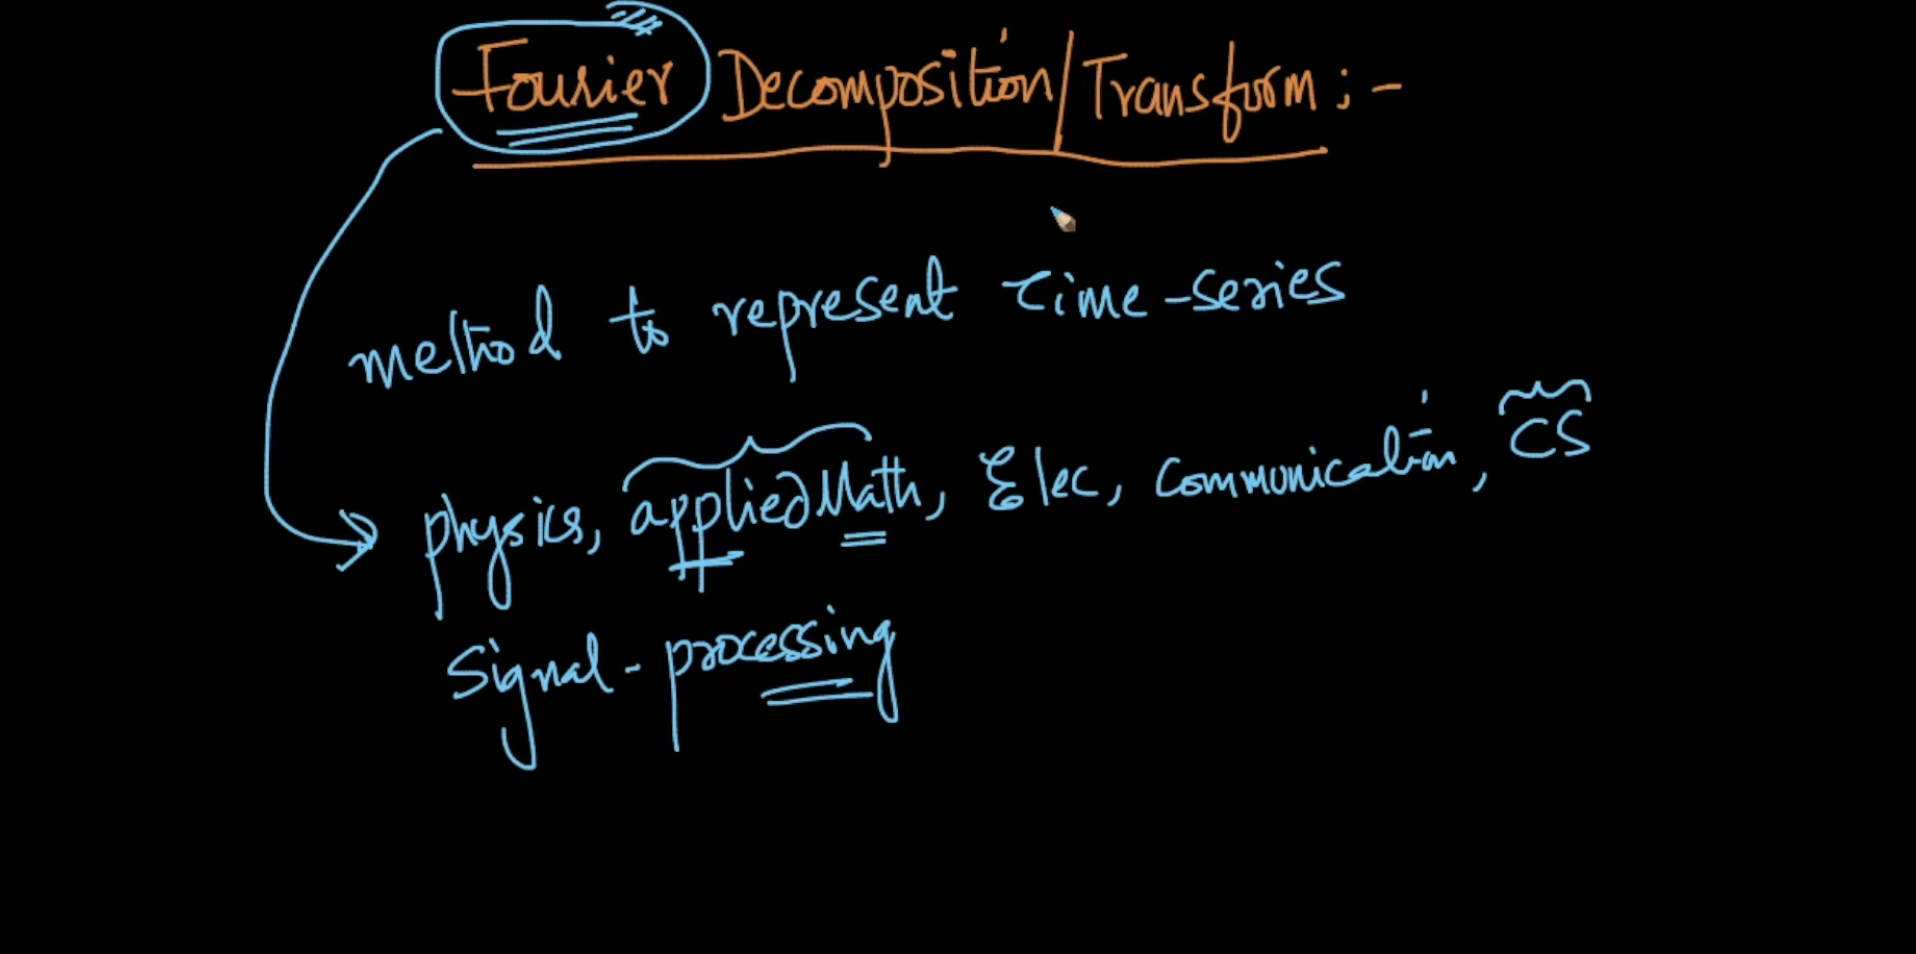 Fourier Decomposition/Transform :-
method to represent Time-series
physics, applied Math, Elec, Communication, CS
Signal-processing